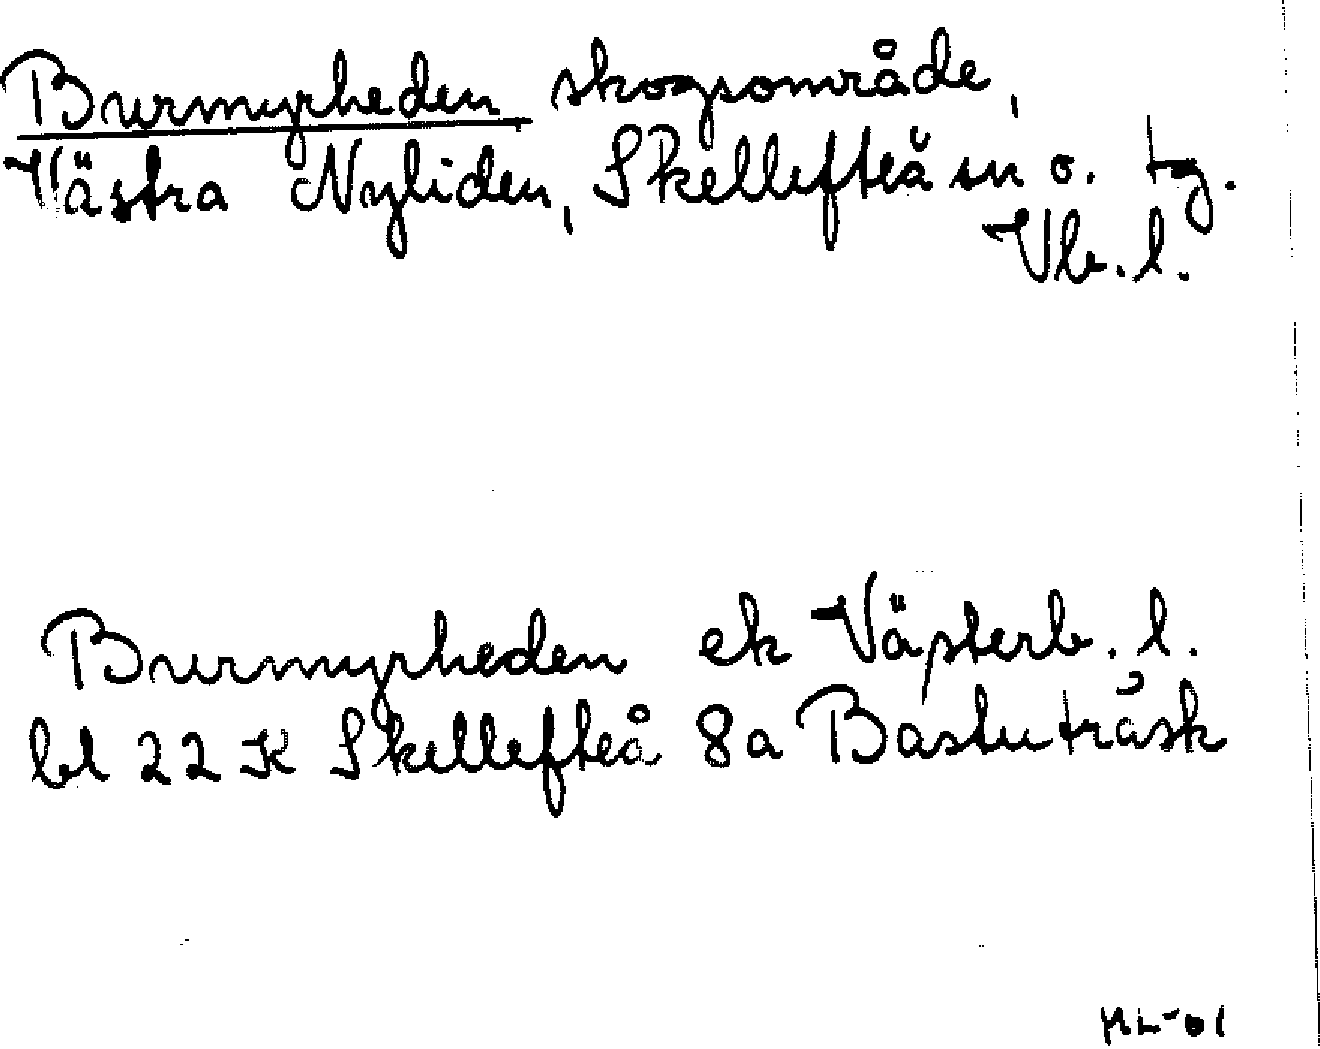 Burmyrheden, skogsområde,
Västra Nyliden, Skellefteå sn o. tg.
Vb. l.
Burmyrheden ek Västerb. l.
bl 22 K Skellefteå 8a Bastuträsk
ML-01